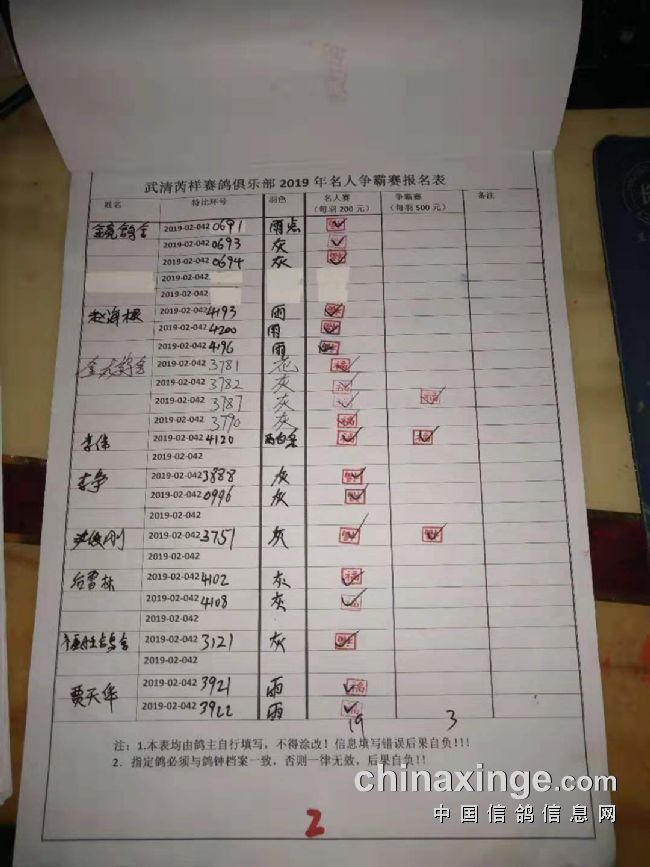 武清芮祥赛鸽俱乐部 2019 年名人争霸赛报名表
姓名 特比环号 羽色 名人赛 争霸赛 备注
(每羽200元) (每羽500元)
2019-02-042 0691 雨点
2019-02-042 0693 灰
2019-02-042 0694 灰
2019-02-042
2019-02-042
2019-02-042 4193 雨
2019-02-042 4200 雨
2019-02-042 4196 雨
2019-02-042 3781 花 福
2019-02-042 3782 灰 福
2019-02-042 3787 灰 福
2019-02-042 3790 灰 福
李伟 2019-02-042 4120 福 福
李争 2019-02-042 3888 灰
2019-02-042 0996 灰
2019-02-042
2019-02-042 3751 灰
2019-02-042
2019-02-042 4102 灰 福
2019-02-042 4108 灰 福
2019-02-042
2019-02-042 3121 灰
2019-02-042
贾天华 2019-02-042 3921 雨 福
2019-02-042 3922 雨 福
19 3
注：1.本表均由鸽主自行填写，不得涂改！信息填写错误后果自负!!!
2．指定鸽必须与鸽钟档案一致，否则一律无效，后果自负!!!
2
chinaxinge.com
中国信鸽信息网